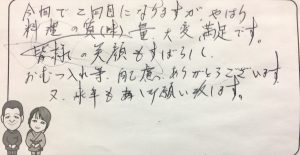 今回で二回目になりますが やはり
料理の質(味) 量 大変満足です。
皆様の笑顔もすばらしく、
おむつ入れ等、配慮、ありがとうございます
又、来年もお願い致します。